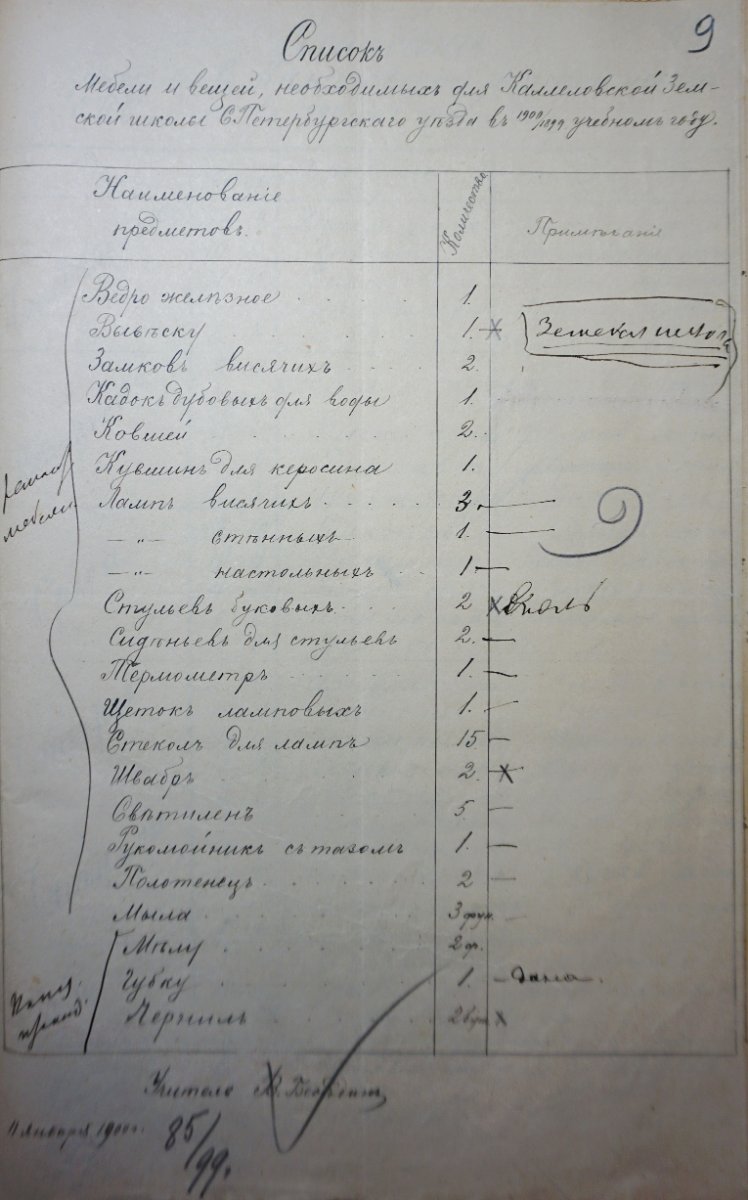 9
Списокъ
Мебели и вещей, необходимыхъ для Каммеловской Зем-
ской школы С Петербургскаго уѣзда въ 1900/1899 учебномъ году.
Наименованіе
предметовъ.
Количество
Примѣчаніе
Ведро желѣзное 1.
Вывѣску 1. Земская школа
Замковъ висячихъ 2.
Кадокъ дубовыхъ для воды 1.
Ковшей 2.
Кувшинъ для керосина 1.
Лампъ висячихъ 3.
—„— стѣнныхъ 1.
—„— настольныхъ 1
Стульевъ буковыхъ 2
Сидѣньевъ для стульевъ 2.
Термометръ 1.
Щетокъ ламповыхъ 1.
Стеколъ для лампъ 15
Швабръ 2.
Свѣтиленъ 5.
Рукомойникъ съ тазомъ 1.
Полотенецъ 2
Мыла 3 фун.
Мѣлу 2 ф.
Губку 1. дана
Чернилъ 2
мебели
Учитель
11 января 1900 г.
85/99.